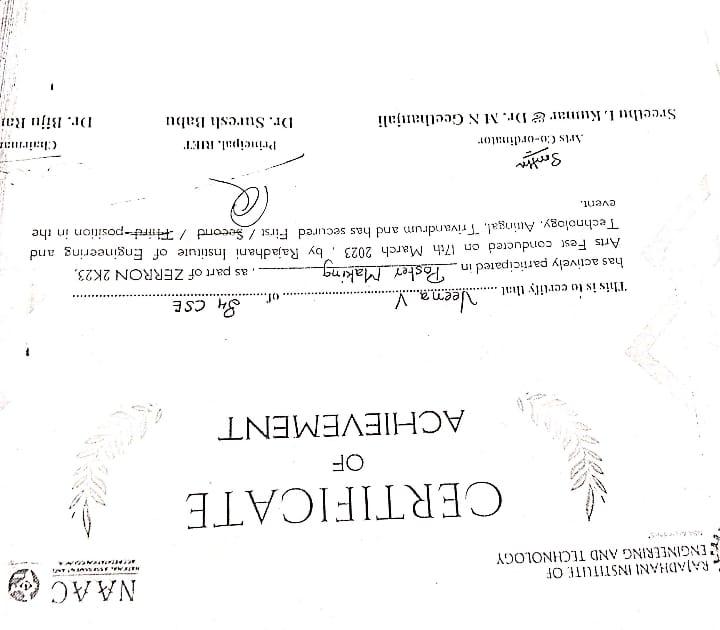 RAJADHANI INSTITUTE OF
ENGINEERING AND TECHNOLOGY
NAAC
NATIONAL ASSESSMENT AND
ACCREDITATION COUNCIL
CERTIFICATE
OF
ACHIEVEMENT
This is to certify that Veena V of S4 CSE
has actively participated in Poster Making, as part of ZERRON 2K23,
Arts Fest conducted on 17th March 2023 , by Rajadhani Institute of Engineering and
Technology, Attingal, Trivandrum and has secured First / Second / Third position in the
event.
Arts Co-ordinator
Sreethu L Kumar & Dr. M N Geethanjali
Principal, RIET
Dr. Suresh Babu
Chairman
Dr. Biju Ra